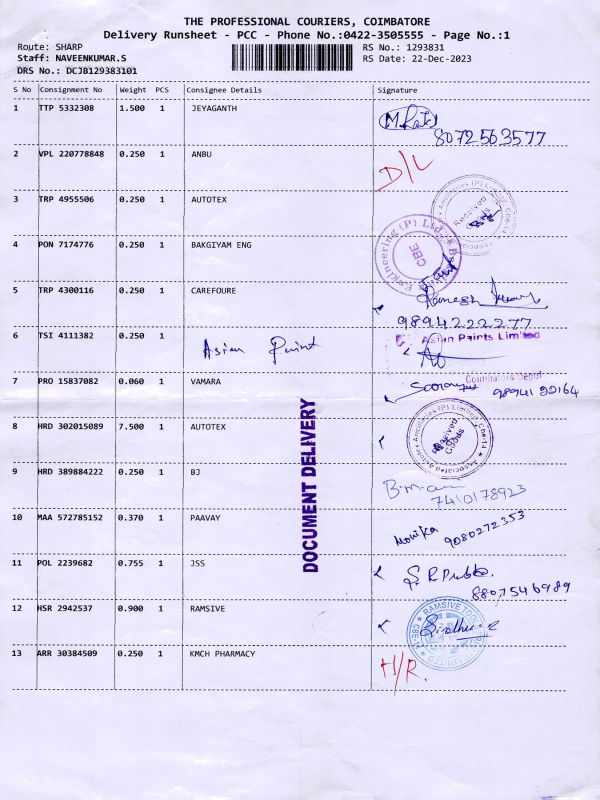 THE PROFESSIONAL COURIERS, COIMBATORE
Delivery Runsheet - PCC - Phone No.:0422-3505555 - Page No.:1
Route: SHARP RS No.: 1293831
Staff: NAVEENKUMAR.S RS Date: 22-Dec-2023
DRS No.: DCJB129383101
S No Consignment No Weight PCS Consignee Details Signature
1 TTP 5332308 1.500 1 JEYAGANTH
8072563577
2 VPL 220778848 0.250 1 ANBU D/L
3 TRP 4955506 0.250 1 AUTOTEX
Received Goods
4 PON 7174776 0.250 1 BAKGIYAM ENG
Engineering (P) Ltd. CBE
5 TRP 4300116 0.250 1 CAREFOURE Ramesh
9894222277
6 TSI 4111382 0.250 1 Asian Paint Asian Paints Limited
Coimbatore Depot
7 PRO 15837082 0.060 1 VAMARA
8 HRD 302015089 7.500 1 AUTOTEX
Received Goods
9 HRD 389884222 0.250 1 BJ
7410178923
10 MAA 572785152 0.370 1 PAAVAY Monika 9080272353
11 POL 2239682 0.755 1 JSS
8807546989
12 HSR 2942537 0.900 1 RAMSIVE
RAMSIVE
13 ARR 30384509 0.250 1 KMCH PHARMACY H/R.
DOCUMENT DELIVERY